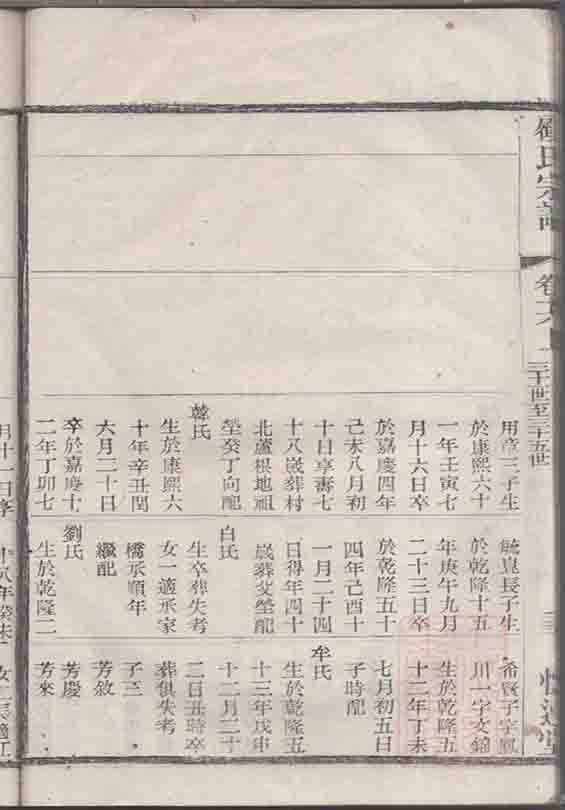 氏宗譜
卷六
用章三子生
於康熙六十
一年壬寅七
月十六日卒
於嘉慶四年
己未八月初
十日享壽七
十八歲葬村
北蘆根地祖
塋癸丁向配
韓氏
生於康熙六
十年辛丑閏
六月二十日
卒於嘉慶十
二年丁卯七
月十一日
長子生
於乾隆十五
年庚午九月
二十三日卒
於乾隆五十
四年己酉十
一月二十四
日得年四十
歲葬父塋配
白氏
生卒葬失考
女一適承家
橋承順年
繼配
劉氏
生於乾隆二
十八年癸未
希賢子字
川一字文錦
生於乾隆五
十二年丁未
七月初五日
子時配
牟氏
生於乾隆五
十三年戊申
十二月二十
二日丑時卒
葬俱失考
子三
芳敘
芳慶
芳來
女二長適江